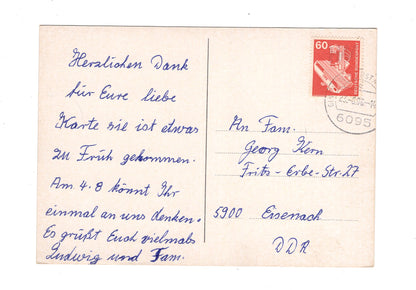 Herzlichen Dank
für Eure liebe
Karte sie ist etwas
zu Früh gekommen.
Am 4.8 könnt Ihr
einmal an uns denken.
Es grüßt Euch vielmals
Ludwig und Fam.
60
6095
An Fam.
Georg Kern
Fritz-Erbe-Str. 27
5900 Eisenach
DDR